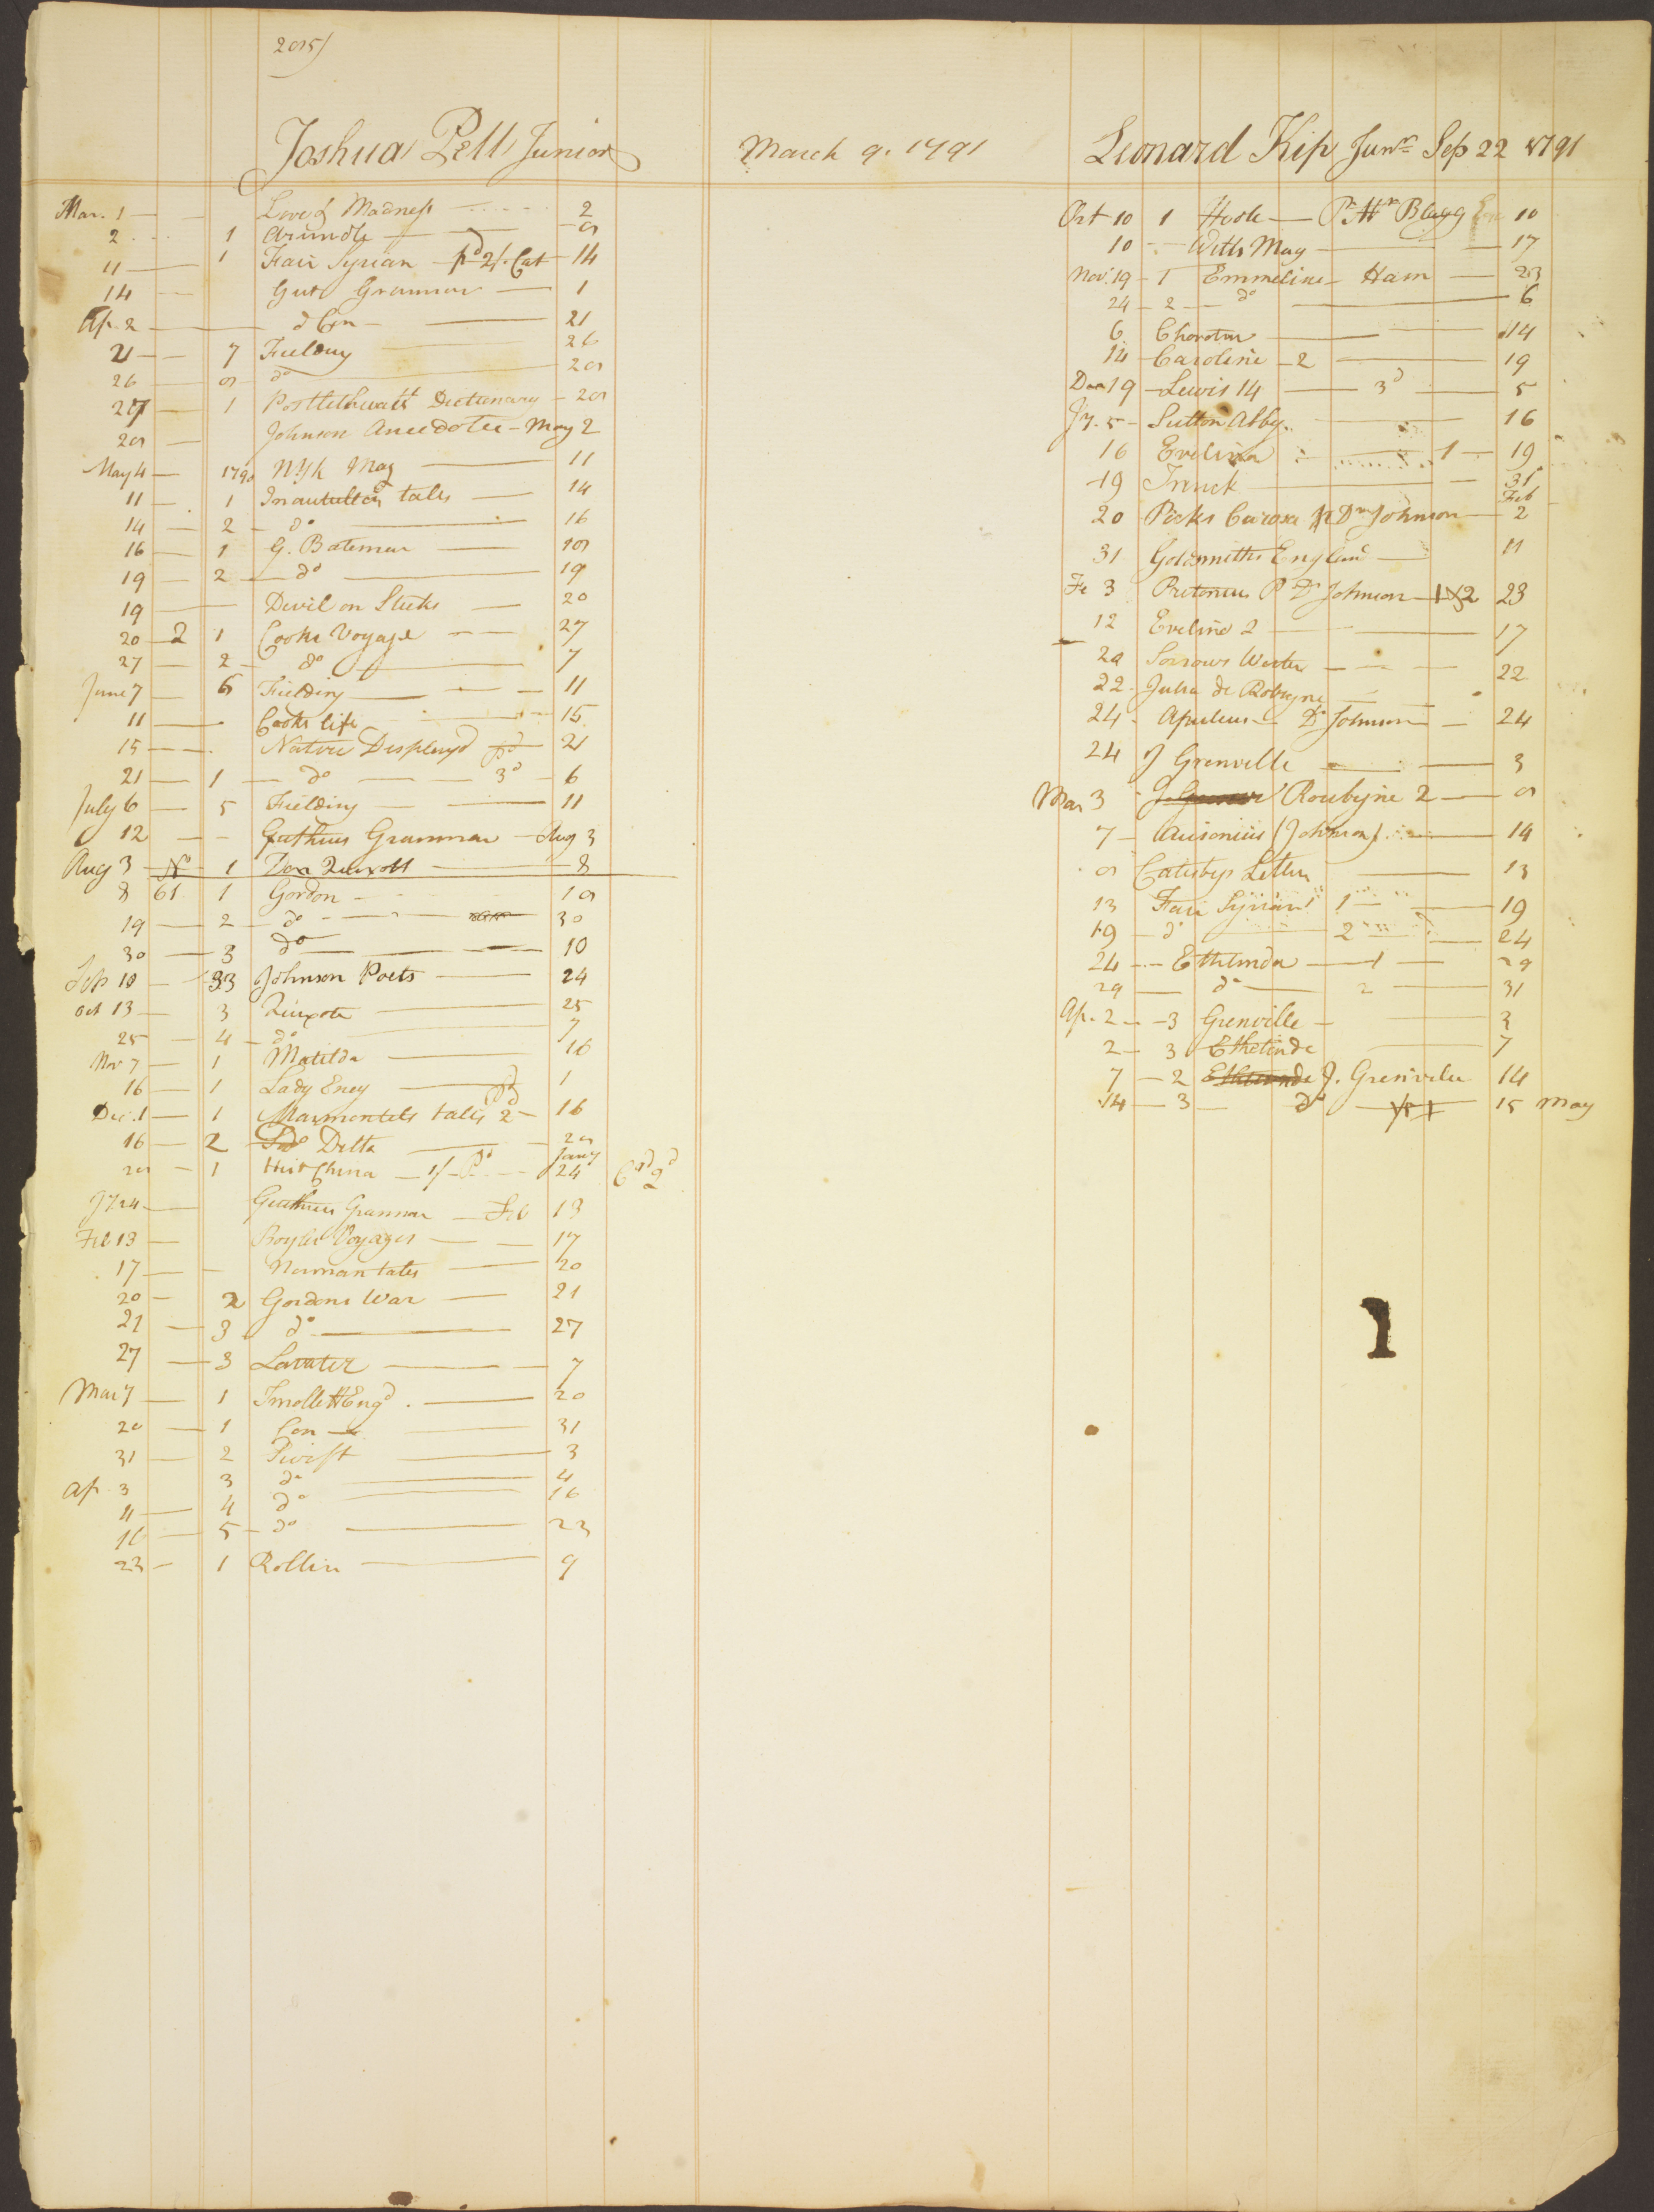 205)
Joshua Pell Junior
Mar. 1 Love & Madness 2
2 1 Arundle 8
11 1 Fair Syrian pd 2/. Cat 14
14 Gut Grammar 1
Ap. 2 do Con 21
21 7 Fielding 26
26 8 do 28
27 1 Postlethwaitt Dictionary 28
28 Johnson Anecdotes - May 2
May 4 1790 NYk Mag 11
11 1 tales 14
14 2 do 16
16 1 G. Bateman 18
19 2 do 19
19 Devil on Sticks 20
20 2 1 Cooks Voyage 27
27 2 do 7
June 7 6 Fielding 11
11 Cooks life 15
15 Nature Displayd pd 21
21 1 do 3d 6
July 6 5 Fielding 11
12 Guthries Grammar Aug 3
Aug 3 No 1 Don Quixott 8
8 61 1 Gordon 18
19 2 do 30
30 3 do 10
Sep 10 33 Johnson Poets 24
Oct 13 3 Quixote 25
25 4 do 7
Nov 7 1 Matilda 16
16 1 Lady 1
Dec. 1 1 Marmontels tales 2d 16
16 2 Ditto 28
28 1 Hist China 1/ Pd Jany 24
Jy 24 Guthries Grammar Feb 13
Feb 13 Voyages 17
17 Norman tales 20
20 2 Gordons War 21
21 3 do 27
27 3 Lavater 7
Mar 7 1 Smollett Engd. 20
20 1 Con 31
31 2 Swift 3
Ap. 3 3 do 4
11 4 do 16
16 5 do 23
23 1 Rollin 9
March 9. 1791
Leonard Kip Junr Sep 22 1791
Oct 10 1 Hoole Pr Mr Blagg 10
10 Witts Mag 17
Nov. 19 1 Emmeline Ham 23
24 2 do 6
6 14
14 Caroline 2 19
19 Lewis 14 3d 5
Jy. 5 Sutton Abby. 16
16 Evelina 1 19
19 Trenck 31
20 Picks Pr Dr Johnson Feb 2
31 Goldsmiths England 11
Fe 3 P Dr Johnson 1&2 23
12 Evelina 2 17
20 Sorrows Werter 22
22 Julia de Robigne
24 Apuleus Dr Johnson 24
24 J Grenville 3
Mar 3 Roubigne 2 8
7 Ausonius (Johnson) 14
8 Catesbys Letters 13
13 Fair Syrian 1 19
19 do 2 24
24 Ethelinda 1 29
29 do 2 31
Ap. 2 3 Grenville 3
2 3 Ethelinde 7
7 2 Ethelinde J. Grenville 14
14 3 do 15 May
1